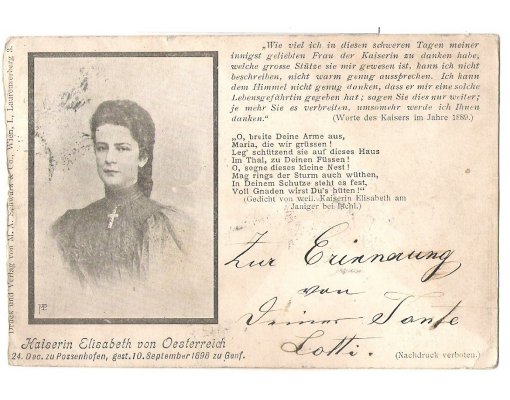 „Wie viel ich in diesen schweren Tagen meiner
innigst geliebten Frau der Kaiserin zu danken habe,
welche grosse Stütze sie mir gewesen ist, kann ich nicht
beschreiben, nicht warm genug aussprechen. Ich kann
dem Himmel nicht genug danken, dass er mir eine solche
Lebensgefährtin gegeben hat; sagen Sie dies nur weiter;
je mehr Sie es verbreiten, umsomehr werde ich Ihnen
danken.“ (Worte des Kaisers im Jahre 1889.)
„O, breite Deine Arme aus,
Maria, die wir grüssen!
Leg' schützend sie auf dieses Haus
Im Thal, zu Deinen Füssen!
O, segne dieses kleine Nest!
Mag rings der Sturm auch wüthen,
In Deinem Schutze steht es fest,
Voll Gnaden wirst Du's hüten!“
(Gedicht von weil. Kaiserin Elisabeth am
Janiger bei Ischl.)
Zur Erinnerung
von
Deiner Tante
Lotti.
(Nachdruck verboten.)
Kaiserin Elisabeth von Oesterreich
24. Dec. zu Possenhofen, gest. 10. September 1898 zu Genf.
Druck und Verlag von M. A. & Co., Wien, I., Laurenzerberg 3.